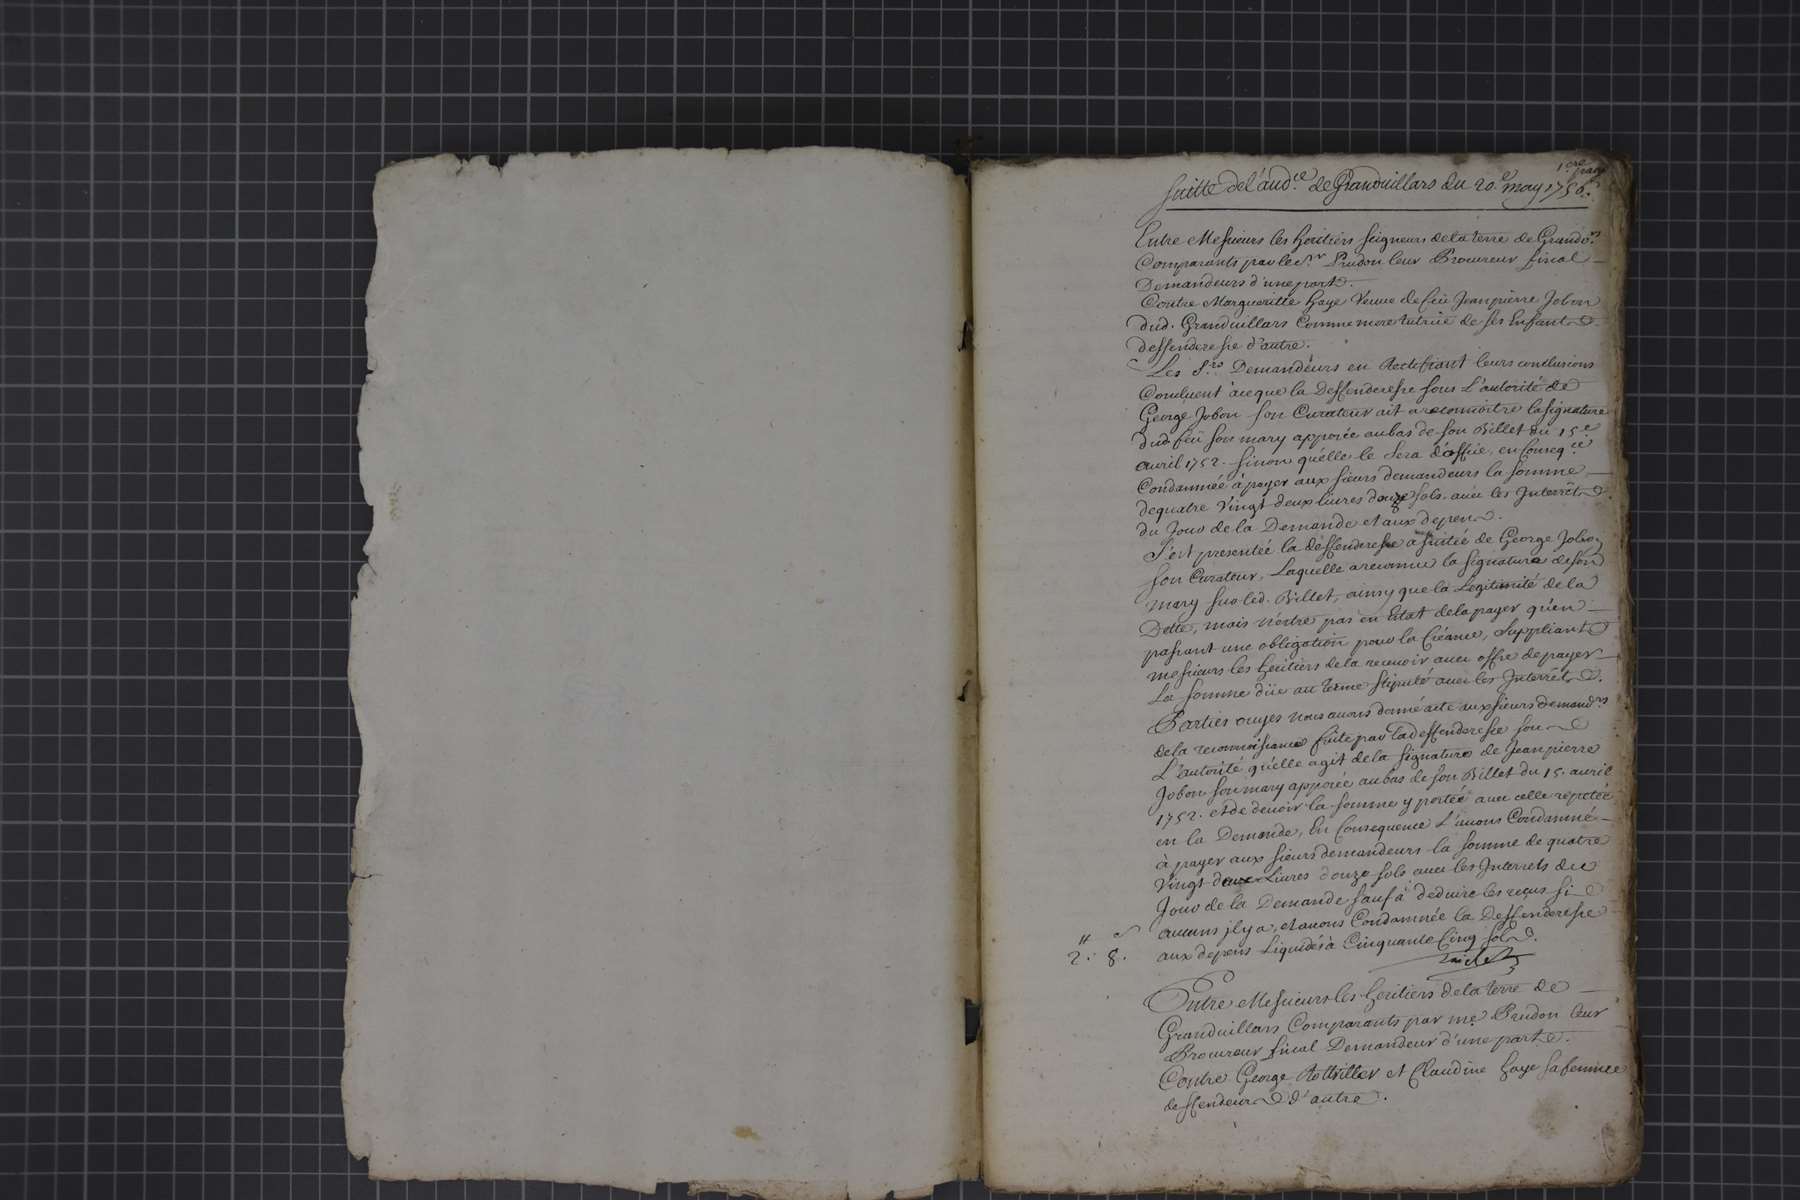 1ere page
Suitte de l'aud.ce de Granduillars du 20.e may 1756.
Entre Messieurs les heritiers seigneurs de la terre de Grandv.rs
Comparants par le S.r Prudon leur Procureur fiscal
Demandeurs d'une part.
Contre Margueritte haye Veuue de feü Jeanpierre Jobon
dud. Granduillars Comme mere tutrice de ses Enfants
deffenderesse d'autre.
Les S.rs Demandeurs en Rectifiant leurs conclusions
Concluent à ce que la Deffenderesse sous L'autorité de
George Jobon son Curateur ait a reconnoitre la signature
dud. feü son mary apposée au bas de son Billet du 15.e
auril 1752. sinon qu'elle le sera d'office, en Conseq.ce
Condamnée à payer aux sieurs demandeurs la somme
de quatre Vingt deux liures douze sols auec les Interrêts
du Jour de la Demande et aux depens.
S'est presentée la deffenderesse assistée de George Jobon
son Curateur, Laquelle a reconnue la signature de son
mary sur led. Billet, ainsy que la Legitimité de la
Dette, mais n'estre pas en Etat de la payer qu'en
passant une obligation pour la Créance, Suppliant
messieurs les heritiers de la receuoir auec offre de payer
La somme düe au terme stipulé auec les Interrêts.
Parties ouyes Nous auons donné acte aux sieurs demand.rs
de la reconnoissance faite par la deffenderesse sous
L'autorité qu'elle agit de la signature de Jeanpierre
Jobon son mary apposée au bas de son Billet du 15. auril
1752. et de deuoir la somme y portée auec celle repetée
en la Demande, En Consequence L'auons Condamné
à payer aux sieurs demandeurs la somme de quatre
Vingt deux Liures douze sols auec les Interrets du
Jour de la Demande sauf à deduire les reçus si
aucuns jl y a, et auons Condamnée la Deffenderesse
aux depens Liquidés à Cinquante Cinq sols.
2. 8.
Entre Messieurs les heritiers de la terre de
Granduillars Comparants par me Prudon leur
Procureur fiscal Demandeur d'une part.
Contre George Rottviller et Claudine haye sa femme
deffendeurs d'autre.